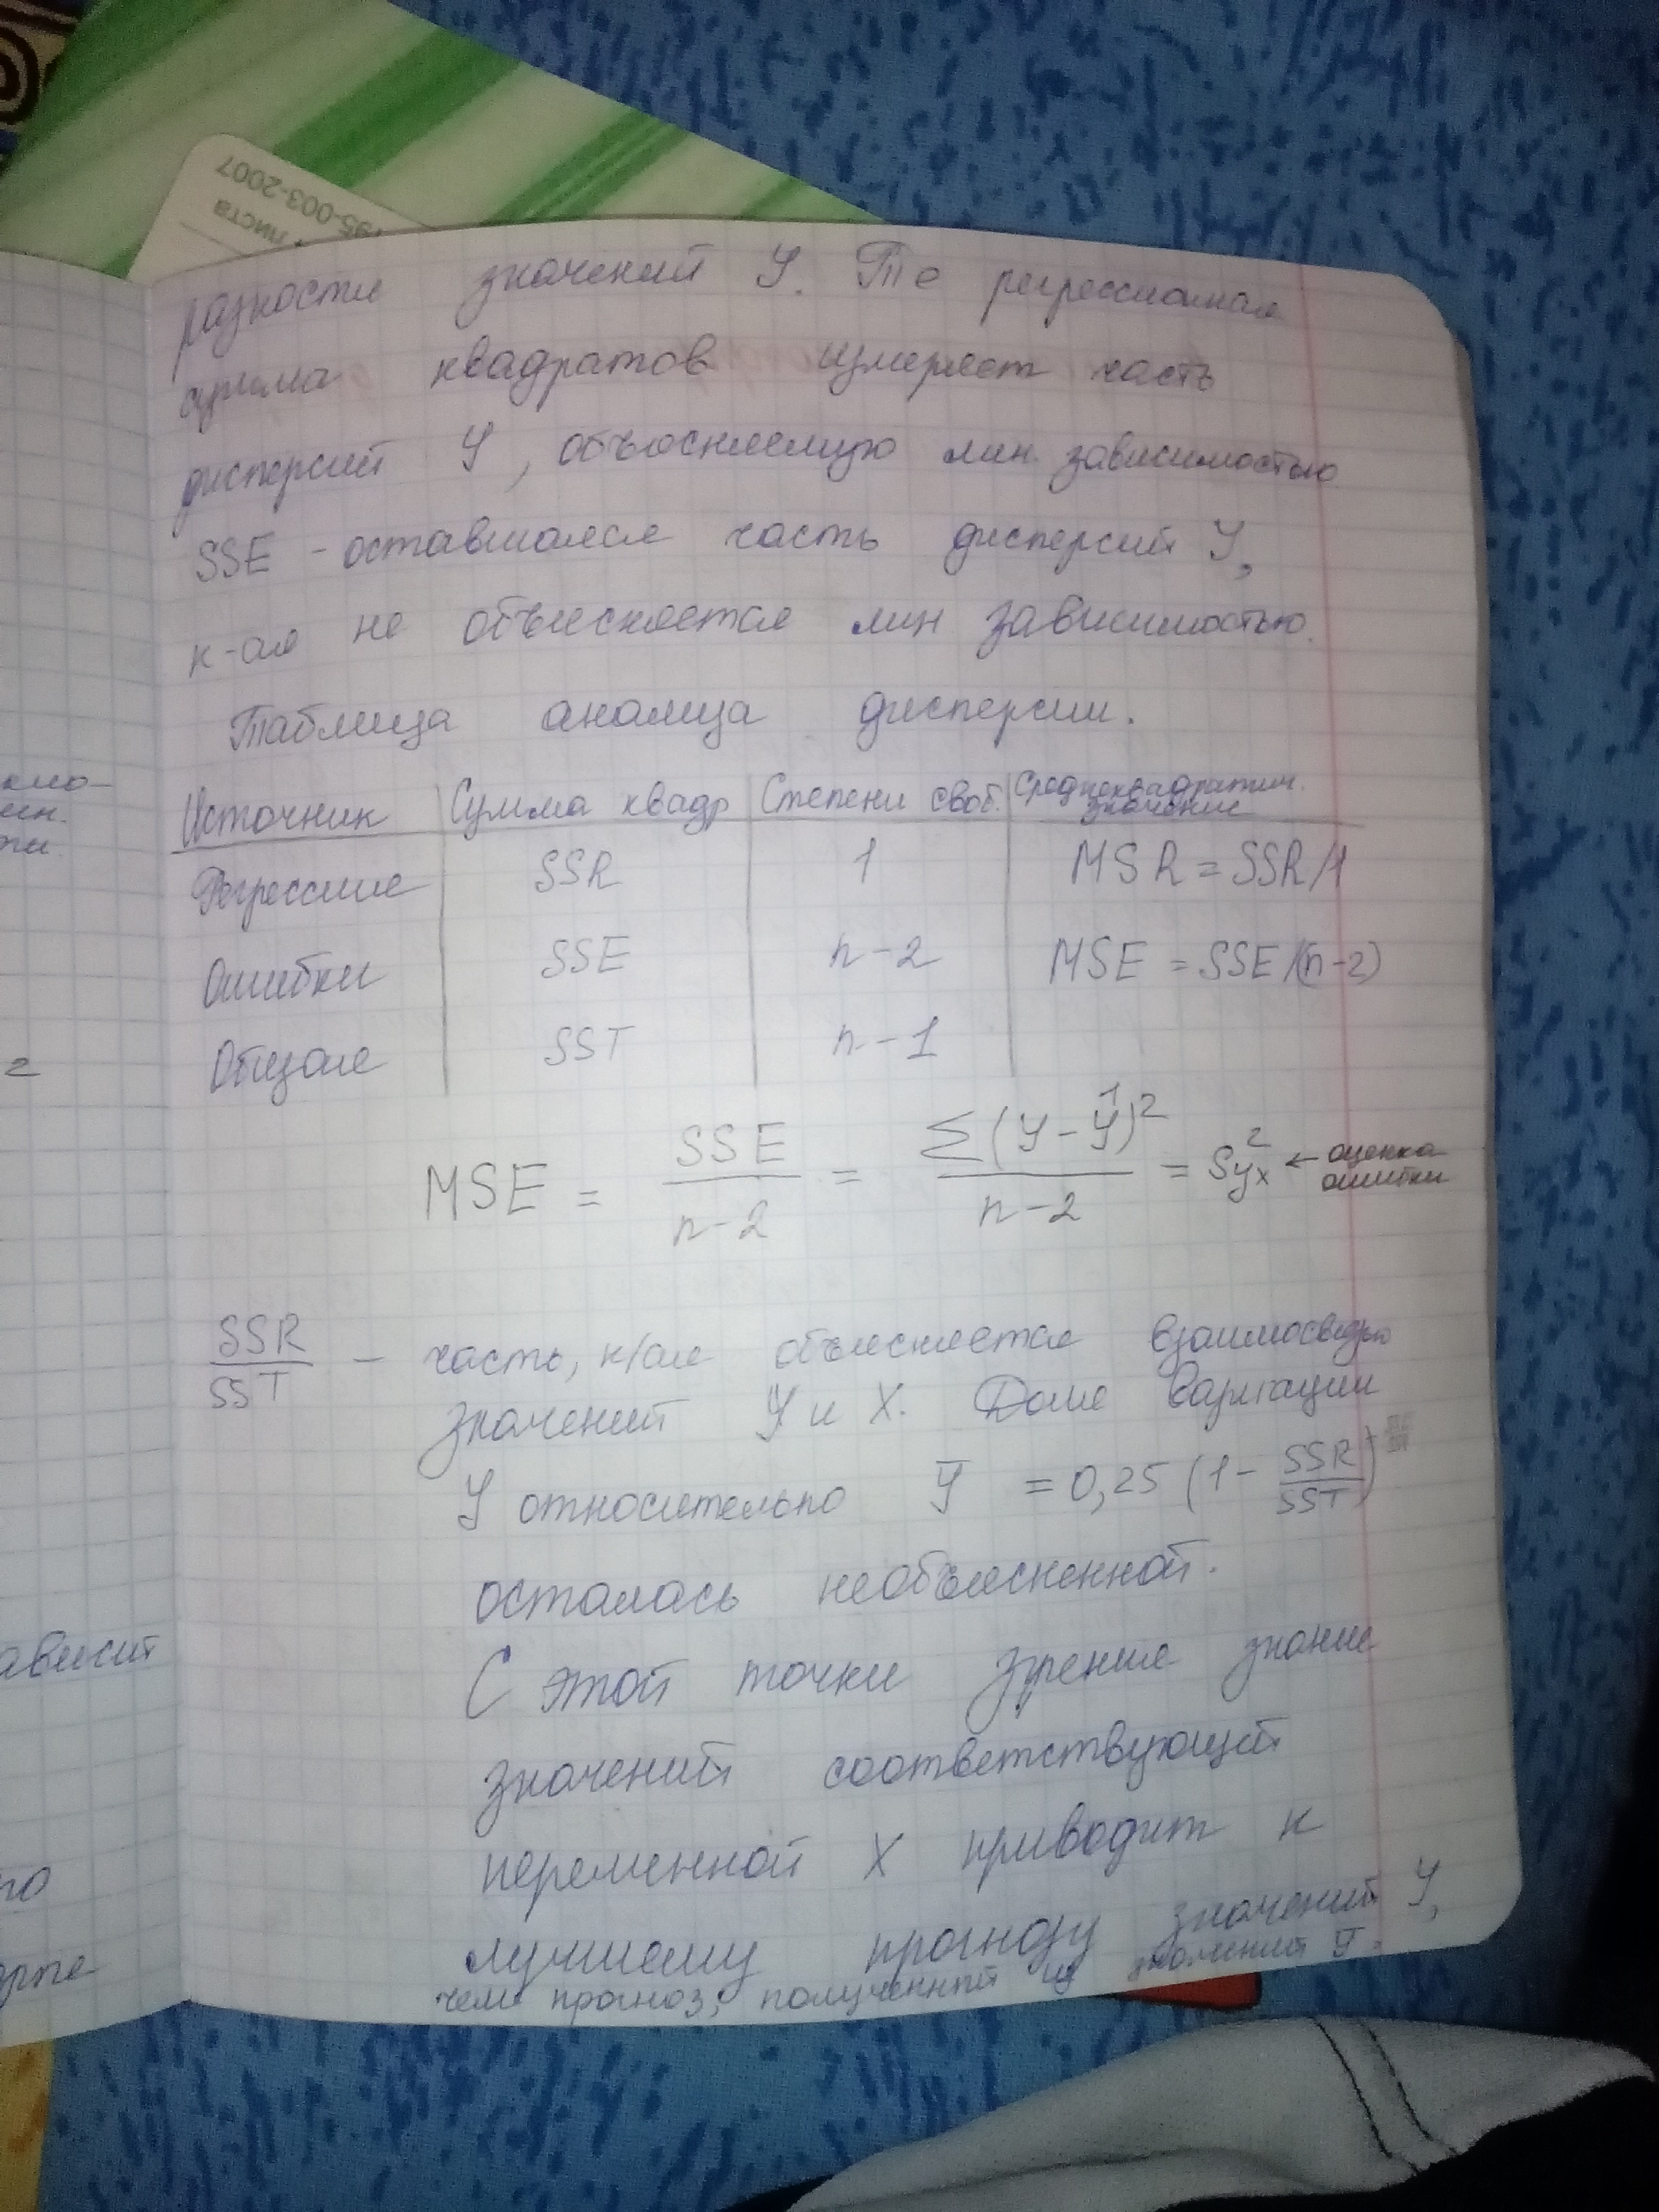 195-003-2007
листа
разности значений У. Т.е регрессионная
сумма квадратов измеряет часть
дисперсий У, объясняемую лин. зависимостью
SSE - оставшаяся часть дисперсий У,
к-ая не объясняется лин зависимостью.
Таблица анализа дисперсии.
Источник Сумма квадр Степени своб. Среднеквадратич. значение
Регрессия SSR 1 MSR = SSR/1
Ошибки SSE n-2 MSE = SSE/(n-2)
Общая SST n-1
MSE = SSE/n-2 = Σ(У-Ŷ)²/n-2 = Syx² ← оценка ошибки
SSR/SST - часть, к/ая объясняется взаимосвязью
значений У и Х. Доля вариации
У относительно Ȳ = 0,25 (1 - SSR/SST)
осталась необъясненной.
С этой точки зрения знание
значений соответствующей
переменной Х приводит к
лучшему прогнозу значений У,
чем прогноз, полученный из значений Ȳ.
ависит